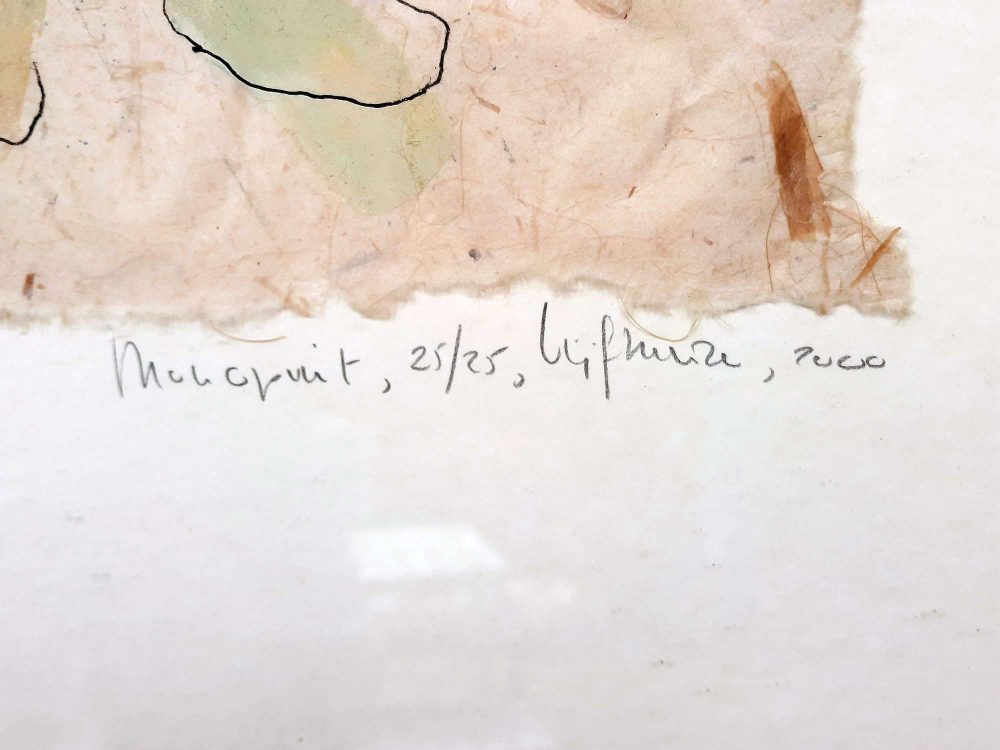 Monoprint, 25/25, 2000